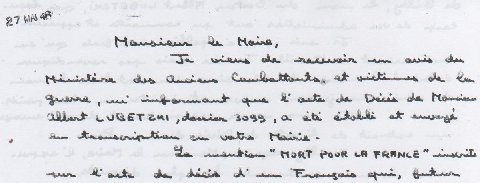 27 JUN 48
Monsieur le Maire,
Je viens de recevoir un avis du
Ministère des Anciens Combattants, et victimes de la
guerre, m'informant que l'acte de Décès de Monsieur
Albert LUBETZKI, dossier 3099, a été établi et envoyé
en transcription en votre Mairie.
La mention "MORT POUR LA FRANCE" inscrite
sur l'acte de décès d'un Français qui, futur